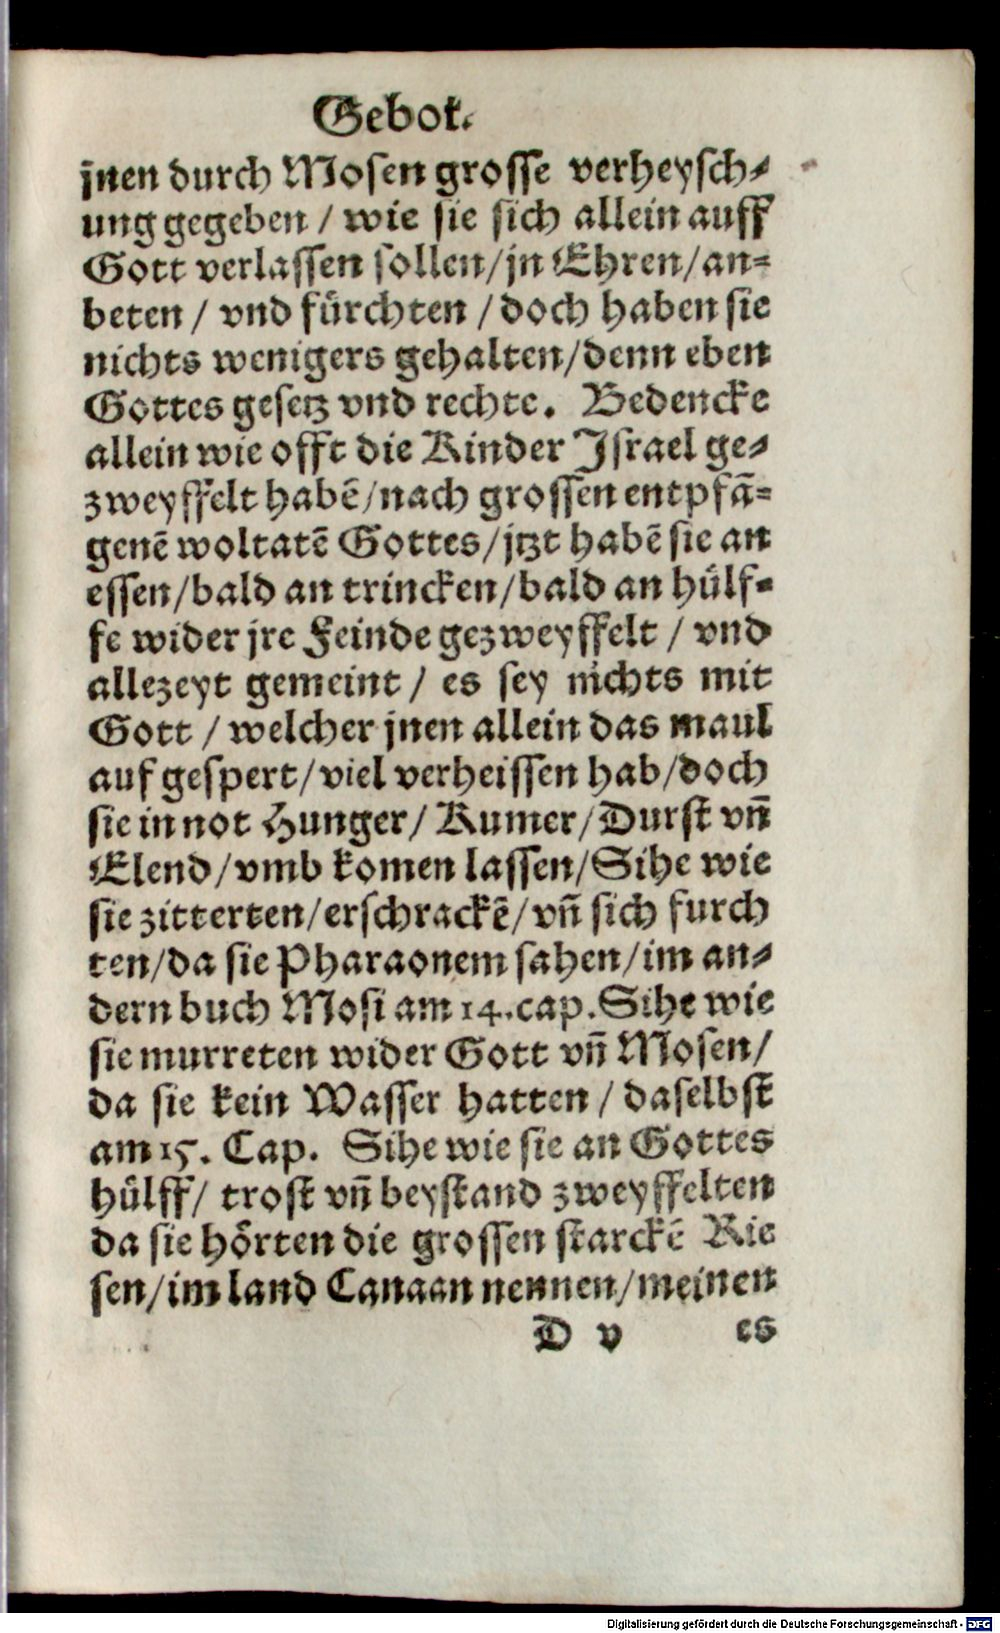 Gebot.
jnen durch Mosen grosse verheysch-
ung gegeben / wie sie sich allein auff
Gott verlassen sollen/jn Ehren/an-
beten / vnd fürchten / doch haben sie
nichts wenigers gehalten/denn eben
Gottes gesetz vnd rechte. Bedencke
allein wie offt die Kinder Israel ge-
zweyffelt habē/nach grossen entpfā-
genē woltatē Gottes/jtzt habē sie an
essen/bald an trincken/bald an hülf-
fe wider jre Feinde gezweyffelt / vnd
allezeyt gemeint / es sey nichts mit
Gott / welcher jnen allein das maul
auf gespert/viel verheissen hab/doch
sie in not Hunger/ Kumer/Durst vn̄
Elend/vmb komen lassen/Sihe wie
sie zitterten/erschrackē/vn̄ sich furch
ten/da sie Pharaonem sahen/im an-
dern buch Mosi am 14.cap.Sihe wie
sie murreten wider Gott vn̄ Mosen/
da sie kein Wasser hatten / daselbst
am 15. Cap. Sihe wie sie an Gottes
hülff/ trost vn̄ beystand zweyffelten
da sie hörten die grossen starckē Rie
sen/im land Canaan nennen/meinen
D v es
Digitalisierung gefördert durch die Deutsche Forschungsgemeinschaft - DFG